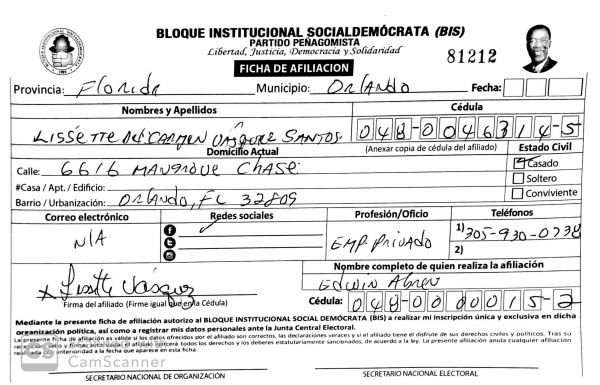 BLOQUE INSTITUCIONAL SOCIALDEMÓCRATA (BIS)
PARTIDO PEÑAGOMISTA
Libertad, Justicia, Democracia y Solidaridad
81212
FICHA DE AFILIACION
Provincia: Florida Municipio: Orlando Fecha:
Nombres y Apellidos Cédula
Lissette Del Carmen Vásquez Santos. 048-0046314-5
Domicilio Actual (Anexar copia de cédula del afiliado) Estado Civil
Calle: 6616 Mangrove Chase Casado
#Casa / Apt. / Edificio: Soltero
Barrio / Urbanización: Orlando, FL 32809 Conviviente
Correo electrónico Redes sociales Profesión/Oficio Teléfonos
N/A Emp. Privado 1) 305-930-0738
2)
Nombre completo de quien realiza la afiliación
x Lissette Vásquez Edwin Abreu
Firma del afiliado (Firme igual que en la Cédula) Cédula: 048-0000015-2
Mediante la presente ficha de afiliación autorizo al BLOQUE INSTITUCIONAL SOCIALDEMÓCRATA (BIS) a realizar mi inscripción única y exclusiva en dicha
organización política, así como a registrar mis datos personales ante la Junta Central Electoral.
La presente ficha de afiliación es válida si los datos ofrecidos por el afiliado son correctos, las declaraciones veraces y si el afiliado tiene el disfrute de sus derechos civiles y políticos. Tras su
el afiliado ejercerá todos los derechos y los deberes estatutariamente sancionados, de acuerdo a la ley. La presente afiliación anula cualquier afiliación
realizada con anterioridad a la fecha que aparece en esta ficha.
CS CamScanner
SECRETARIO NACIONAL DE ORGANIZACIÓN SECRETARIO NACIONAL ELECTORAL